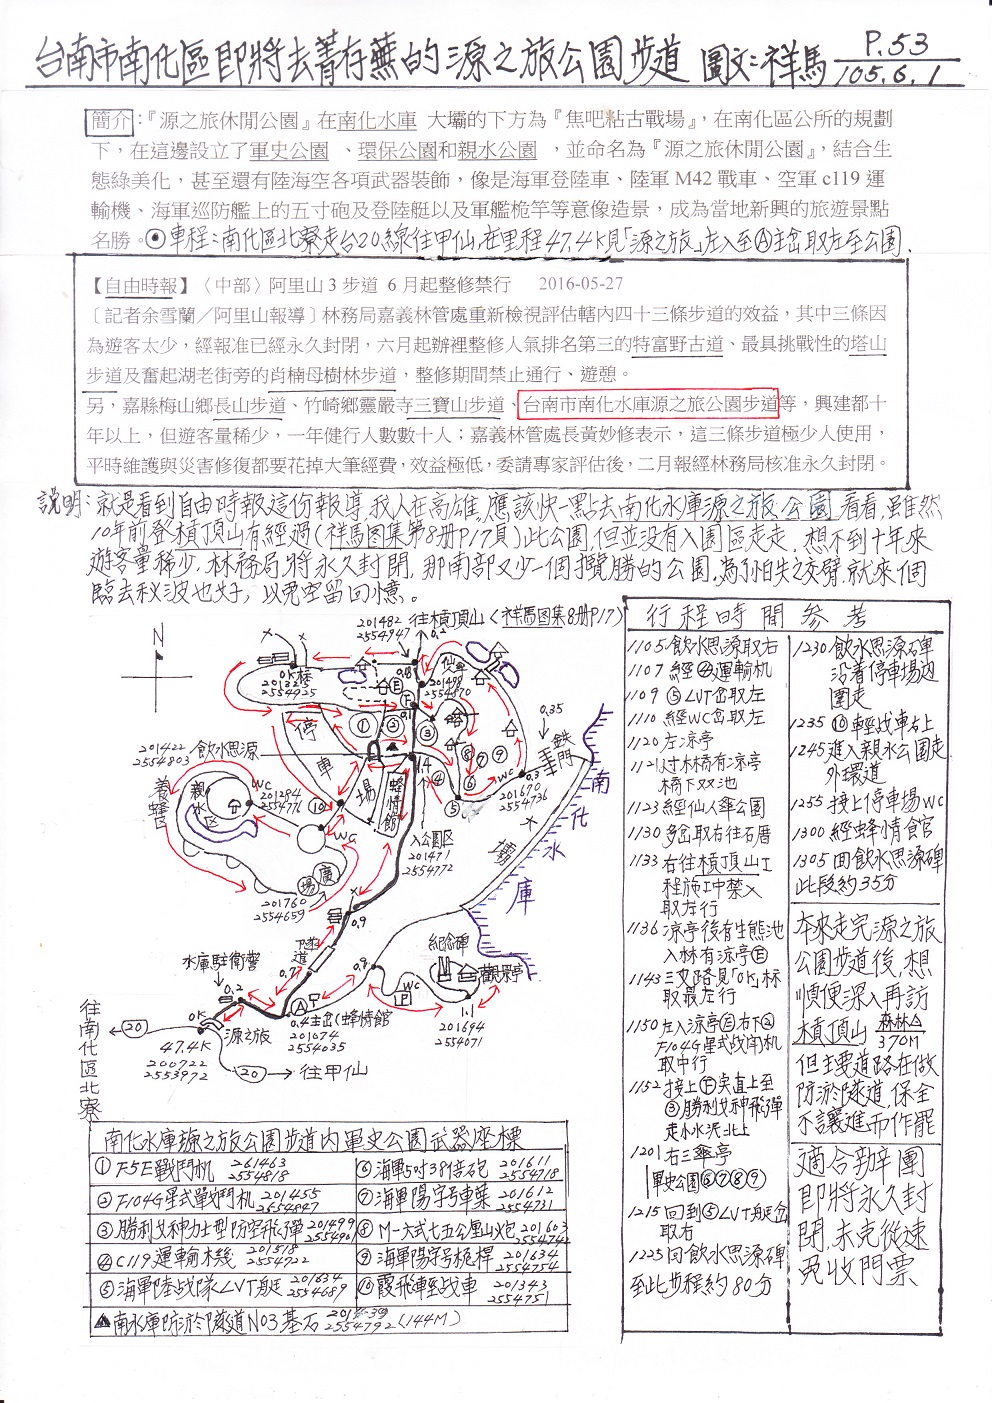 台南市南化區即將去菁存蕪的源之旅公園步道 圖文:祥馬
P.53
105.6.1
簡介:『源之旅休閒公園』在南化水庫 大壩的下方為『焦吧哖古戰場』,在南化區公所的規劃
下,在這邊設立了軍史公園 、環保公園和親水公園 ,並命名為『源之旅休閒公園』,結合生
態綠美化,甚至還有陸海空各項武器裝飾,像是海軍登陸車、陸軍 M42 戰車、空軍 c119 運
輸機、海軍巡防艦上的五寸砲及登陸艇以及軍艦桅竿等意像造景,成為當地新興的旅遊景點
名勝。⊙車程:南化區北寮走台20線往甲仙,在里程47.4K見「源之旅」左入至Ⓐ主岔取左至公園.
【自由時報】〈中部〉阿里山 3 步道 6 月起整修禁行 2016-05-27
〔記者余雪蘭/阿里山報導〕林務局嘉義林管處重新檢視評估轄內四十三條步道的效益,其中三條因
為遊客太少,經報准已經永久封閉,六月起辦裡整修人氣排名第三的特富野古道、最具挑戰性的塔山
步道及奮起湖老街旁的肖楠母樹林步道,整修期間禁止通行、遊憩。
另,嘉縣梅山鄉長山步道、竹崎鄉靈嚴寺三寶山步道、台南市南化水庫源之旅公園步道等,興建都十
年以上,但遊客量稀少,一年健行人數數十人;嘉義林管處長黃妙修表示,這三條步道極少人使用,
平時維護與災害修復都要花掉大筆經費,效益極低,委請專家評估後,二月報經林務局核准永久封閉。
說明:就是看到自由時報這份報導,我人在高雄,應該快一點去南化水庫源之旅公園看看,雖然
10年前登槓頂山有經過(祥馬图集第8册P17頁)此公園,但並没有入園區走走.想不到十年來
遊客量稀少,林務局將永久封閉,那南部又少一個攬勝的公園,為了怕失之交臂,就來個
臨去秋波也好,以免空留回憶。
201482
2554947
往槓頂山(祥馬图集8册P17)
N
0.2
仙傘
0.8
樓
201325
2554925
201498
2554870
0.1
停
車
場
0.35
鉄門
201422
2554803
飲水思源
1.4
蜂情館
WC
0.3
201670
2554736
南
化
水
庫
壩
養蜂區
親水区
WC
201294
2554776
WC
入公園区
201471
2554772
廣場
201760
2554659
0.9
隧道
0.7
0.9
紀念碑
觀景亭
WC
P
1.1
201694
2554071
水庫駐衛警
0.2
0K
源之旅
0.4主岔(蜂情館
201074
2554035
往南化區北寮
20
47.4K
200722
2553972
20
往甲仙
行程時間參考
1105飲水思源取右
1107 經④運輸机
1109 ⑤LVT岔取左
1110 經WC岔取左
1120 左涼亭
1121过林橋有涼亭
橋下双池
1123 經仙人傘公園
1130 多岔取右往石厝
1133 右往槓頂山工
程施工中禁入
取左行
1136 凉亭後有生態池
入林有涼亭Ⓔ
1143 三叉路見「0K」林
取最左行
1150左入涼亭Ⓔ右下②
F104G星式战鬥机
取中行
1152 接上Ⓕ尖直上至
③勝利女神飛彈
走小水泥北上
1201 右三傘亭
軍史公園⑥⑦⑧⑨
1215 回到⑤LVT艇岔
取右
1225回飲水思源碑
至此步程約80分
1230飲水思源碑
沿着停車場边
園走
1235 ⑩輕战車右上
1245進入親水公園走
外環道
1255 接上停車場WC
1300 經蜂情食官
1305 回飲水思源碑
此段約35分
本來走完源之旅
公園步道後,想
順便深入再訪
槓頂山 森林△
370M
但主要道路在做
防淤隧道,保全
不讓進而作罷
適合辦團
即將永久封
閉,未完從速
免收門票
南化水庫源之旅公園步道內軍史公園武器座標
① F5E戰鬥机 261463
2554818
② F104G星式單戰鬥机 201455
2654847
③ 勝利女神力士型防空飛彈 201499
255496
④ C119運輸木幾 201518
2554722
⑤ 海軍陸战隊LVT艇 201634
2554689
⑥ 海軍5吋38倍砲 201611
2554718
⑦ 海軍陽字号車葉 201612
2554731
⑧ M一六式七五公厘山炮 201603
2554742
⑨ 海軍陽字号桅桿 201634
2554754
⑩ 霞飛車輕战車 201343
2554751
▲南水庫防淤隧道NO3基石 2014-39
2554792 (144M)